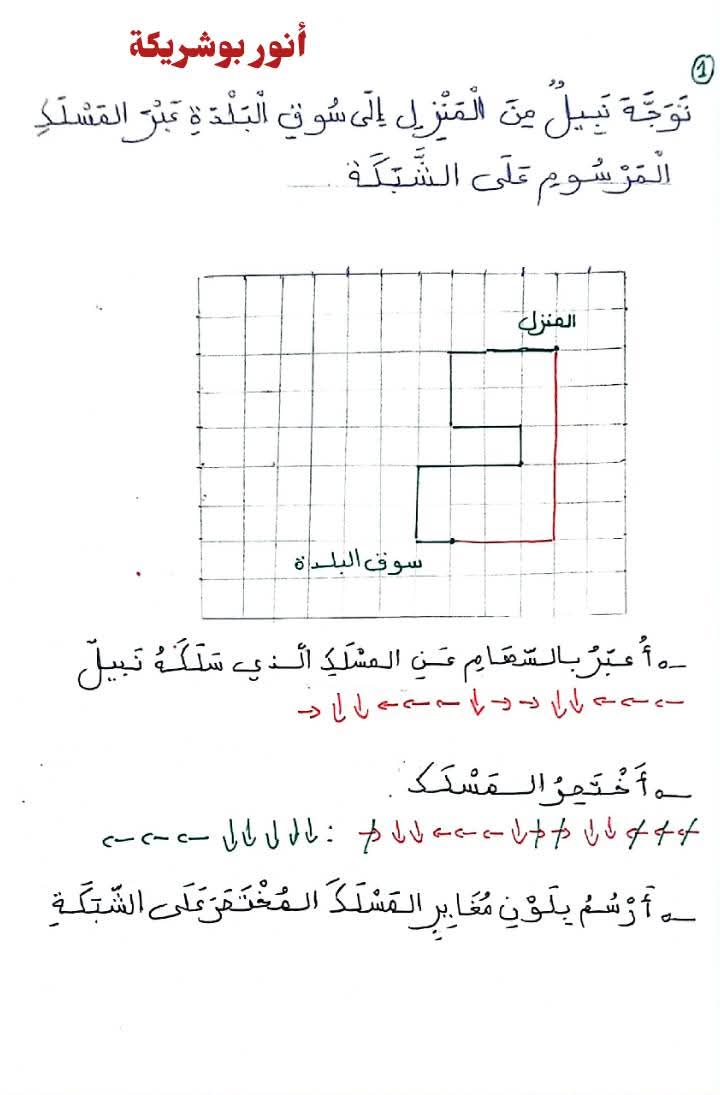 أنور بوشريكة
①
تَوَجَّهَ نَبِيلٌ مِنَ الْمَنْزِلِ إِلَى سُوقِ الْبَلْدَةِ عَبْرَ المَسْلَكِ
الْمَرْسُومِ عَلَى الشَّبَكَة ....
المنزل
سوق البلدة
ـ أُعَبِّرُ بِالسِّهَامِ عَنِ المسْلَكِ الَّذي سَلَكَهُ نَبِيلٌ
← ← ← ↓ ↓ → → ↓ ← ← ← ↓ ↓ →
ـ أَخْتَصِرُ المَسْلَكَ.
← ← ← ↓ ↓ → → ↓ ← ← ← ↓ ↓ → : ↓ ↓ ↓ ↓ ↓ ← ← ←
ـ أَرْسُمُ بِلَوْنٍ مُغَايِرٍ المَسْلَكَ المُخْتَصَرَ عَلَى الشَّبَكَةِ